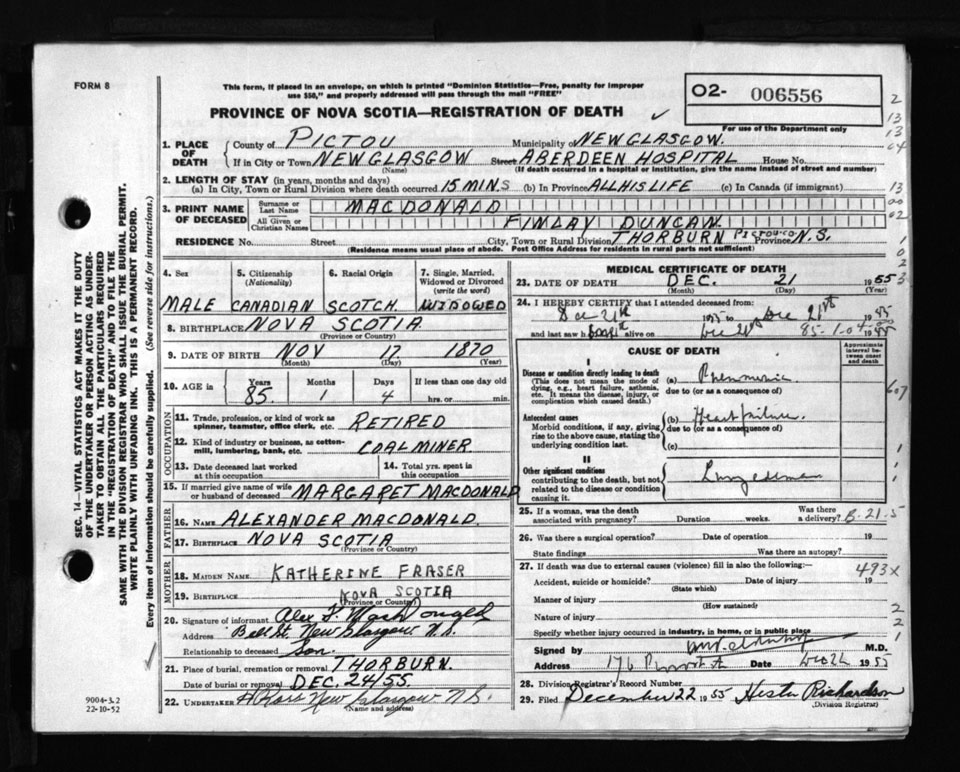 FORM 8
This form, if placed in an envelope, on which is printed "Dominion Statistics—Free, penalty for improper
use $50," and properly addressed will pass through the mail "FREE"
O2- 006556
For use of the Department only
PROVINCE OF NOVA SCOTIA—REGISTRATION OF DEATH
1. PLACE OF DEATH County of PICTOU Municipality of NEW GLASGOW.
If in City or Town NEW GLASGOW Street ABERDEEN HOSPITAL House No.
(Name) (If death occurred in a hospital or institution, give the name instead of street and number)
2. LENGTH OF STAY (in years, months and days)
(a) In City, Town or Rural Division where death occurred 15 MINS (b) In Province ALL HIS LIFE (c) In Canada (if immigrant)
3. PRINT NAME OF DECEASED Surname or Last Name MACDONALD
All Given or Christian Names FINLAY DUNCAN
RESIDENCE No. Street City, Town or Rural Division THORBURN PICTOU CO Province N.S.
(Residence means usual place of abode. Post Office Address for residents in rural parts not sufficient)
4. Sex MALE
5. Citizenship (Nationality) CANADIAN
6. Racial Origin SCOTCH
7. Single, Married, Widowed or Divorced (write the word) WIDOWED
8. BIRTHPLACE NOVA SCOTIA
(Province or Country)
9. DATE OF BIRTH NOV 17 1870
(Month) (Day) (Year)
10. AGE in Years Months Days If less than one day old
85. 1 4 hrs. or min.
OCCUPATION
11. Trade, profession, or kind of work as spinner, teamster, office clerk, etc. RETIRED
12. Kind of industry or business, as cotton-mill, lumbering, bank, etc. COAL MINER
13. Date deceased last worked at this occupation
14. Total yrs. spent in this occupation
15. If married give name of wife or husband of deceased MARGARET MACDONALD
FATHER
16. NAME ALEXANDER MACDONALD.
17. BIRTHPLACE NOVA SCOTIA
(Province or Country)
MOTHER
18. MAIDEN NAME KATHERINE FRASER
19. BIRTHPLACE NOVA SCOTIA
(Province or Country)
20. Signature of informant Alex F. MacDonald
Address Bell St. New Glasgow N.S.
Relationship to deceased son.
21. Place of burial, cremation or removal THORBURN.
Date of burial or removal DEC. 24/55
22. UNDERTAKER New Glasgow N.S.
(Name and address)
MEDICAL CERTIFICATE OF DEATH
23. DATE OF DEATH DEC. 21 1955
(Month) (Day) (Year)
24. I HEREBY CERTIFY that I attended deceased from:
Dec 21st 1955 to Dec 21st 1955
and last saw h alive on Dec 21st 85-1-04 1955
CAUSE OF DEATH
Approximate interval between onset and death
I
Disease or condition directly leading to death
(This does not mean the mode of dying, e.g., heart failure, asthenia, etc. It means the disease, injury, or complication which caused death.)
(a) Pneumonia
due to (or as a consequence of)
Antecedent causes
Morbid conditions, if any, giving rise to the above cause, stating the underlying condition last.
(b) Heart failure.
due to (or as a consequence of)
(c)
II
Other significant conditions
contributing to the death, but not related to the disease or condition causing it.
Lung edema
25. If a woman, was the death associated with pregnancy? Duration weeks. Was there a delivery? B-21-5
26. Was there a surgical operation? Date of operation 19
State findings Was there an autopsy?
27. If death was due to external causes (violence) fill in also the following:— 493X
Accident, suicide or homicide? Date of injury 19
(State which)
Manner of injury
(How sustained)
Nature of injury
Specify whether injury occurred in industry, in home, or in public place
Signed by M.D.
Address 176 Provost St Date Dec 22 1955
28. Division Registrar's Record Number
29. Filed December 22 1955 Hester Richardson
(Division Registrar)
SEC. 14—VITAL STATISTICS ACT MAKES IT THE DUTY
OF THE UNDERTAKER OR PERSON ACTING AS UNDER-
TAKER TO OBTAIN ALL THE PARTICULARS REQUIRED
IN THE "REGISTRATION OF DEATH" AND TO FILE THE
SAME WITH THE DIVISION REGISTRAR WHO SHALL ISSUE THE BURIAL PERMIT.
WRITE PLAINLY WITH UNFADING INK. THIS IS A PERMANENT RECORD.
Every item of information should be carefully supplied. (See reverse side for instructions.)
9004-3.2
22-10-52
2
13
13
64
13
00
02
1
0
2
3
607
1
1
1
2
2
1